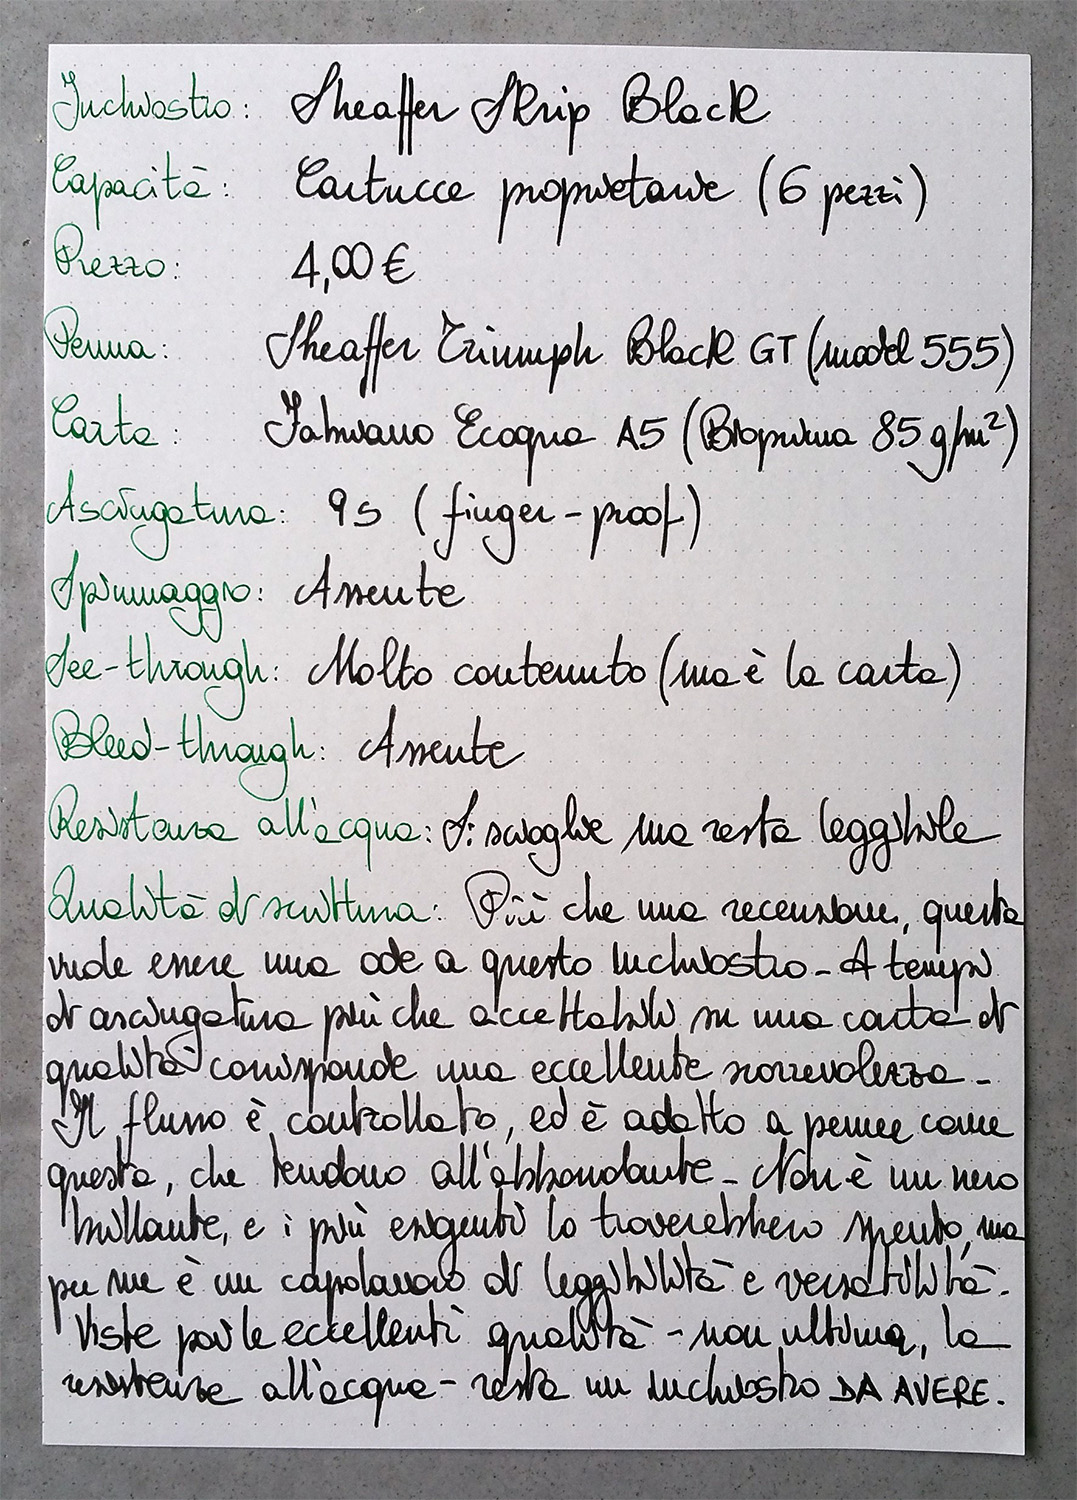 Inchiostro: Sheaffer Skrip Black
Capacità: Cartucce proprietarie (6 pezzi)
Prezzo: 4,00 €
Penna: Sheaffer Triumph Black GT (model 555)
Carta: Fabriano Ecoqua A5 (Bioprima 85 g/m²)
Asciugatura: 9s (finger-proof)
Spiumaggio: Assente
See-through: Molto contenuto (ma è la carta)
Bleed-through: Assente
Resistenza all'acqua: Si scioglie ma resta leggibile
Qualità di scrittura: Più che una recensione, questa
vuole essere una ode a questo inchiostro - A tempi
di asciugatura più che accettabili su una carta di
qualità corrisponde una eccellente scorrevolezza -
Il flusso è controllato, ed è adatto a penne come
questa, che tendono all'abbondante - Non è un nero
brillante, e i più esigenti lo troverebbero spento, ma
per me è un capolavoro di leggibilità e versatilità.
Viste poi le eccellenti qualità - non ultima, la
resistenza all'acqua - resta un inchiostro DA AVERE.